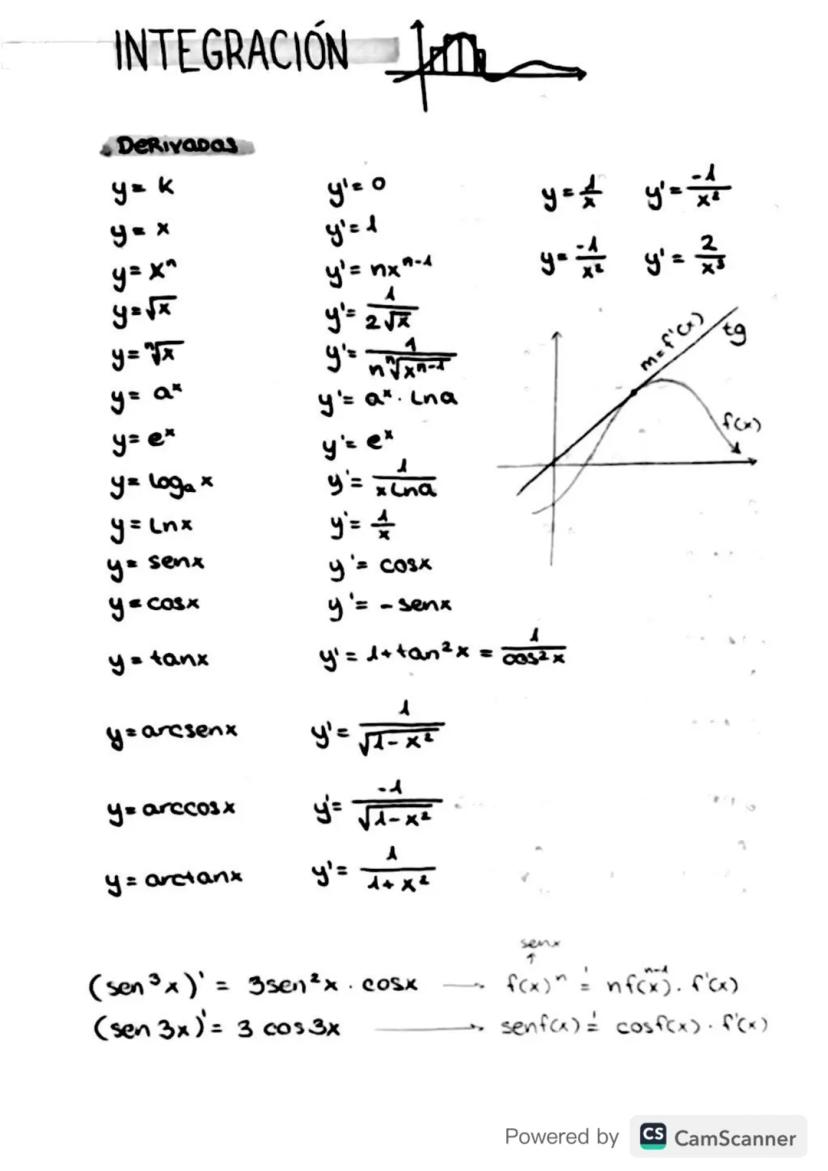 INTEGRACIÓN
DERIVADAS
y = k    y' = 0    y = 1/x    y' = -1/x²
y = x    y' = 1
y = xⁿ    y' = nxⁿ⁻¹    y = -1/x²    y' = 2/x³
y = √x    y' = 1/(2√x)
y = ⁿ√x    y' = 1/(n ⁿ√(xⁿ⁻¹))    m = f'(x)    tg
y = aˣ    y' = aˣ · Lna
y = eˣ    y' = eˣ    f(x)
y = logₐ x    y' = 1/(x Lna)
y = Lnx    y' = 1/x
y = senx    y' = cosx
y = cosx    y' = - senx
y = tanx    y' = 1 + tan²x = 1/cos²x
y = arcsenx    y' = 1/√(1 - x²)
y = arccosx    y' = -1/√(1 - x²)
y = arctanx    y' = 1/(1 + x²)
senx
↑
(sen³x)' = 3sen²x · cosx → f(x)ⁿ ' = nf(x)ⁿ⁻¹ · f'(x)
(sen 3x)' = 3 cos3x → senf(x)' = cosf(x) · f'(x)
Powered by CS CamScanner